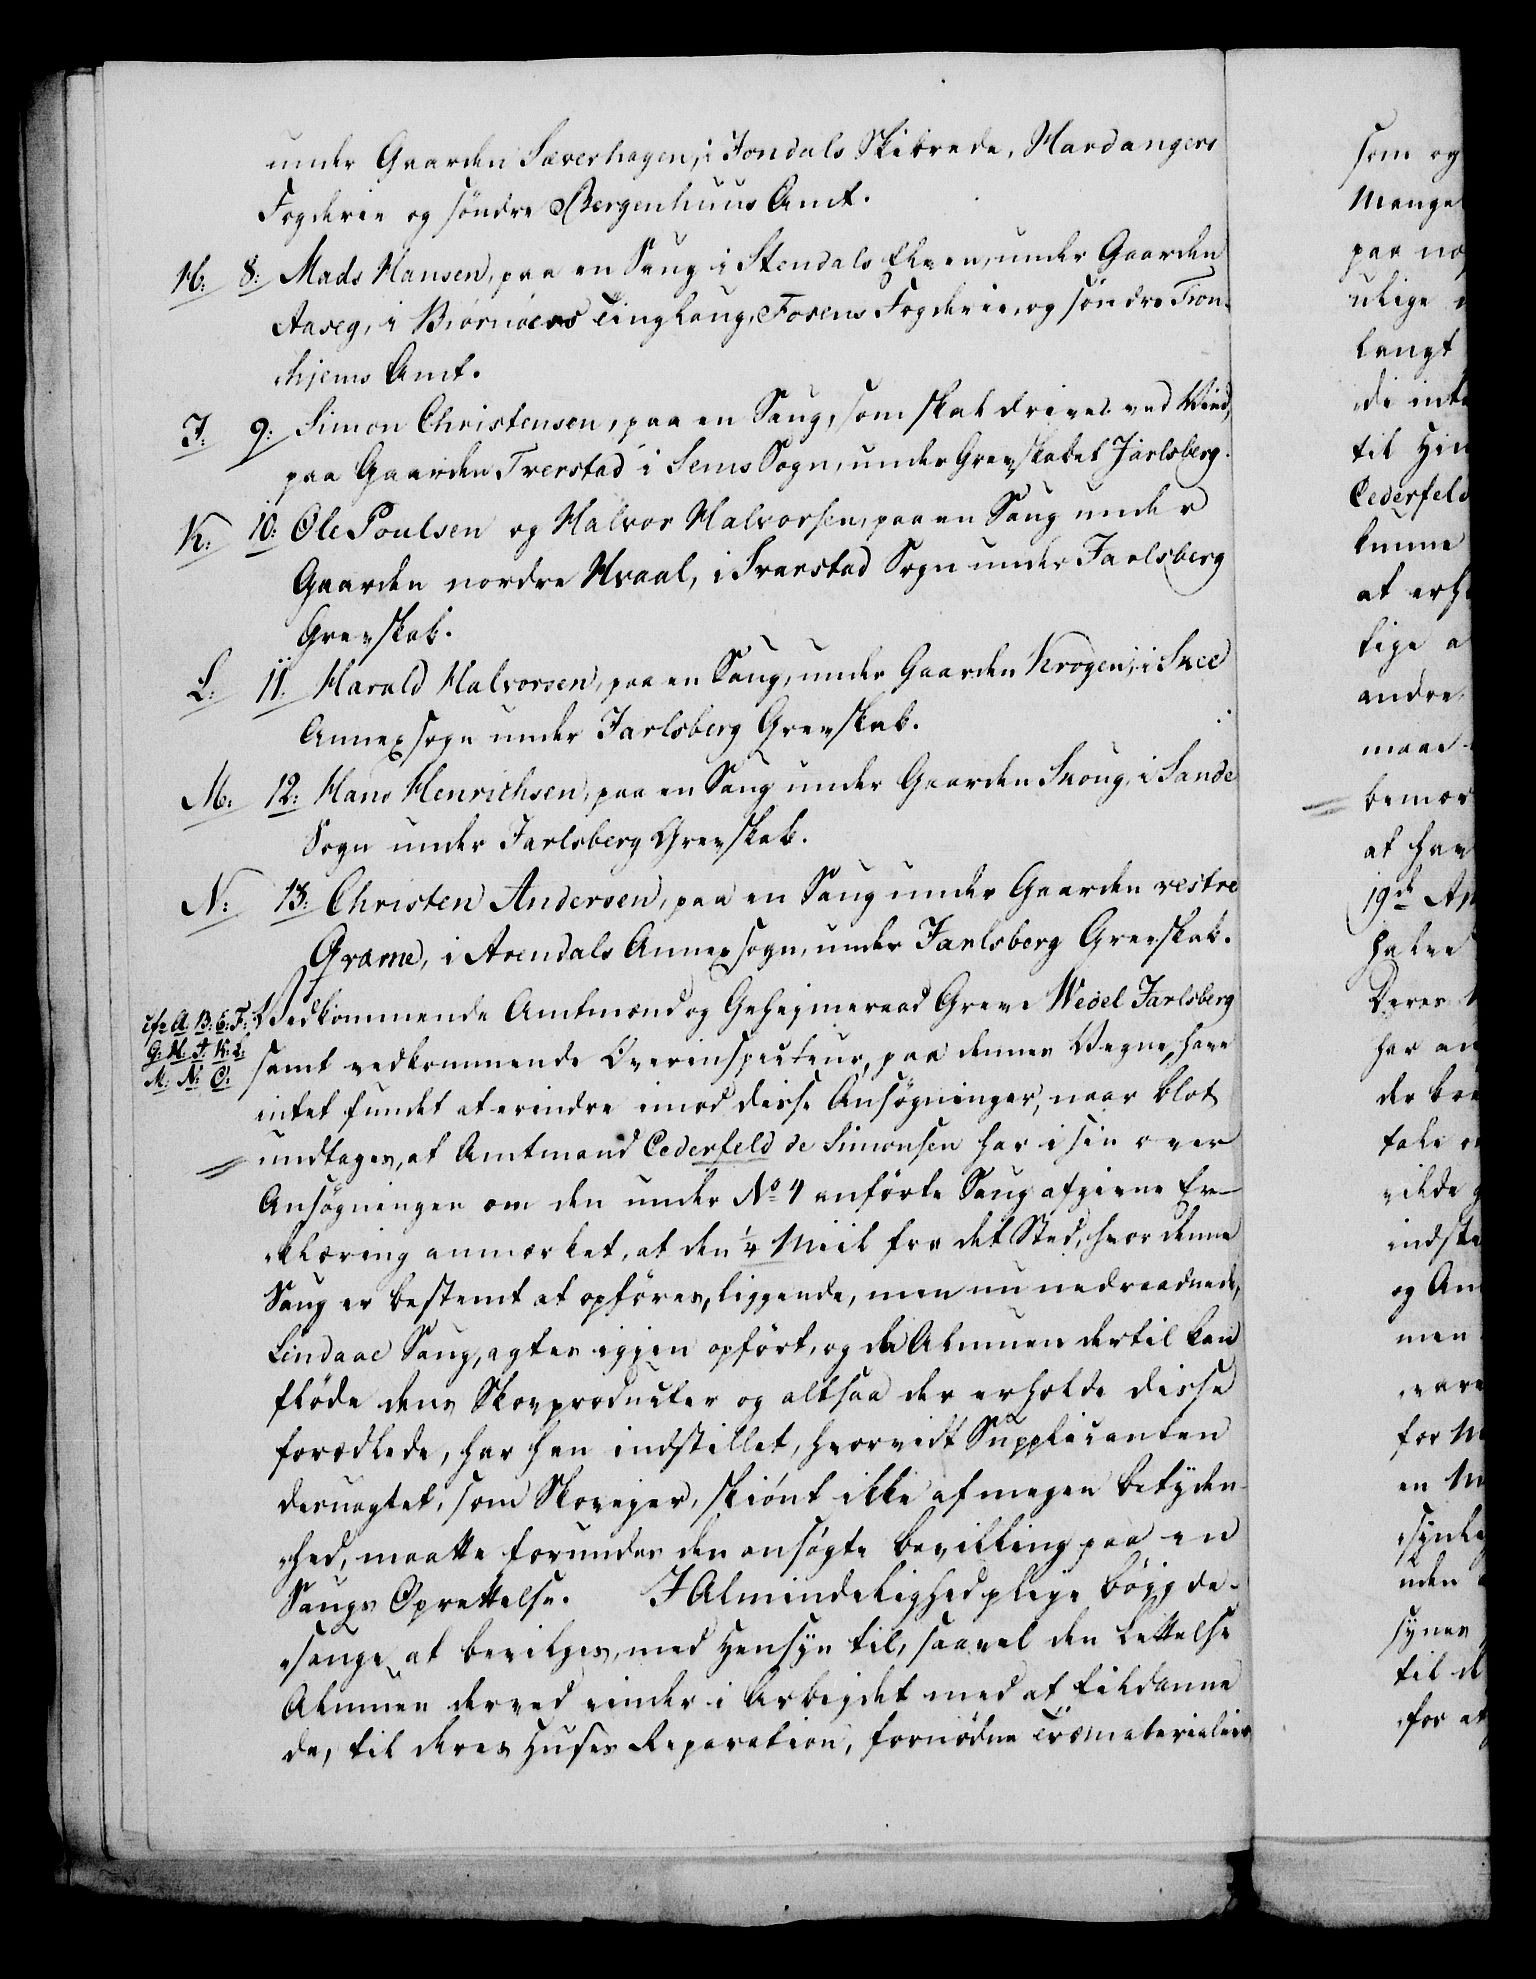 under Gaarden Sæverhagen, i Jondals Skibrede, Hardangers
Fogderie og söndre Bergenhuus Amt.
H: 8: Mads Hansen, paa en Saug i Stendals Elven, under Gaarden
Aaseg, i Biørnöers Tinglaug, Fosens Fogderie, og söndre Tron-
hjems Amt.
I: 9: Simon Christensen, paa en Saug, som skal drives ved Vind,
paa Gaarden Trerstad i Sems Sogn, under Grevskabet Jarlsberg.
K: 10: Ole Poulsen og Halvor Halvorsen, paa en Saug under
Gaarden nordre Hvaal, i Svarstad Sogn under Jarlsberg
Grevskab.
L: 11. Harald Halvorsen, paa en Saug, under Gaarden Krogen, i
Annexsogn under Jarlsberg Grevskab.
M: 12: Hans Henrichsen, paa en Saug under Gaarden Snoug, i Sande
Sogn under Jarlsberg Grevskab.
N: 13: Christen Andersen, paa en Saug under Gaarden vestre
Græme, i Arendals Annexsogn, under Jarlsberg Grevskab.
cfr A. B. 6. F.
G. H. I. K. L.
M. N. O.
Vedkommende Amtmænd og Geheimeraad Greve Wedel Jarlsberg
samt vedkommende Overinspecteur, paa dennes Vegne, have
intet fundet at erindre imod disse Ansøgninger, naar blot
undtages, at Amtmand Cederfeld de Simonsen har i sin over
Ansøgningen om den under No 4 anförte Saug afgivne Er-
klæring anmærket, at den 1/4 Miil fra det Sted, hvor denne
Saug er bestemt at opføres, liggende, men nu nedraadnede,
Lindaae Saug, agtes igjen opført, og da Almuen dertil kan
fløde dens Skovproducter og altsaa der erholde disse
forædlede, har han indstillet, hvorvidt Supplicanten
desuagtet, som Skoveyer, skiönt ikke af megen betyden-
hed, maatte forundes den ansøgte bevilling paa en
Saugs Oprettelse. I Almindelighed pleye böygde-
sauge at bevilges, med Hensyn til, saavel den Lettelse
Almuen derved vinder i Arbeydet med at tildanne
de, til deres Huses Reparation, fornødne Træmaterialier
som og
Mange
paa no
ulige
langt
di int
til Hin
Cederfeld
kunne
at erh
lige a
andre
maae
bemær
at hav
19de Ap
halve
Deres
har an
der bev
tale
vilde
indst
og Am
men
være
for M
en M
synle
uden
synes
til d
for at